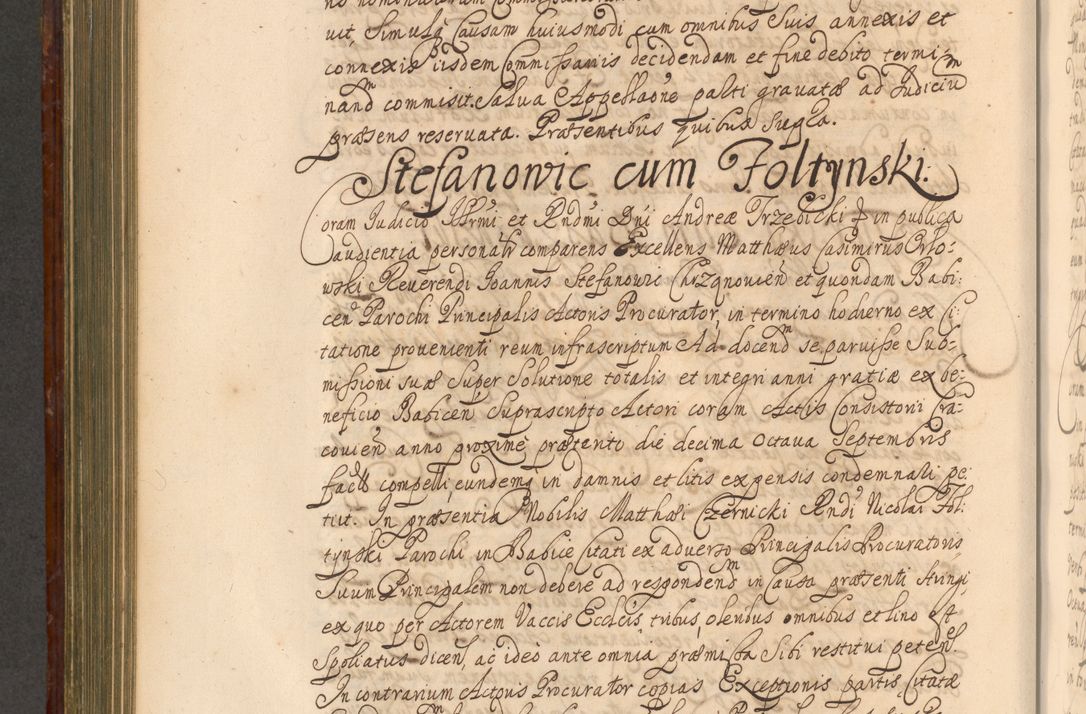 uit, Simulq Causam huiusmodi cum omnibus Suis annexis et
connexis iisdem Commissariis decidendam et fine debito termi=
nandm commisit. Salva Appellaone parti gravatæ ad Judiciu
præsens reservata. Præsentibus quibus supra.
Stefanowic cum Foltynski.
Coram Judicio Illrmi et Rndmi Dni Andreæ Trzebicki in publica
audientia personalr comparens Excellens Matthæus Casimirus Orlo=
wski Reverendi Joannis Stefanowic Chrzanovien et quondam Babi=
cen Parochi Principalis Actoris Procurator, in termino hodierno ex Ci=
tatione provenienti reum infrascriptum Ad docendm se paruisse Sub=
missioni suæ Super Solutione totalis et integri anni gratiæ ex be=
neficio Babicen Suprascripto Actori coram Actis Consistorii Cra=
covien anno proxime præterito die decima octava Septembris
factæ compelli, eundemq in damnis et litis expensis condemnari pe=
tiit. In præsentia Nobilis Matthæi Czernicki Rndi Nicolai Fol=
tynski Parochi in Babice Citati ex adverso Principalis Procuratoris,
Suum Principalem non debere ad respondendm in causa præsenti Aringi
ex quo per Actorem Vaccis Ecclcis tribus, oleribus omnibus et lino est
Spoliatus dicen, ac ideo ante omnia præmissa Sibi restitui peten.
In contrarium Actoris Procurator copias Exceptionis partis Citatæ